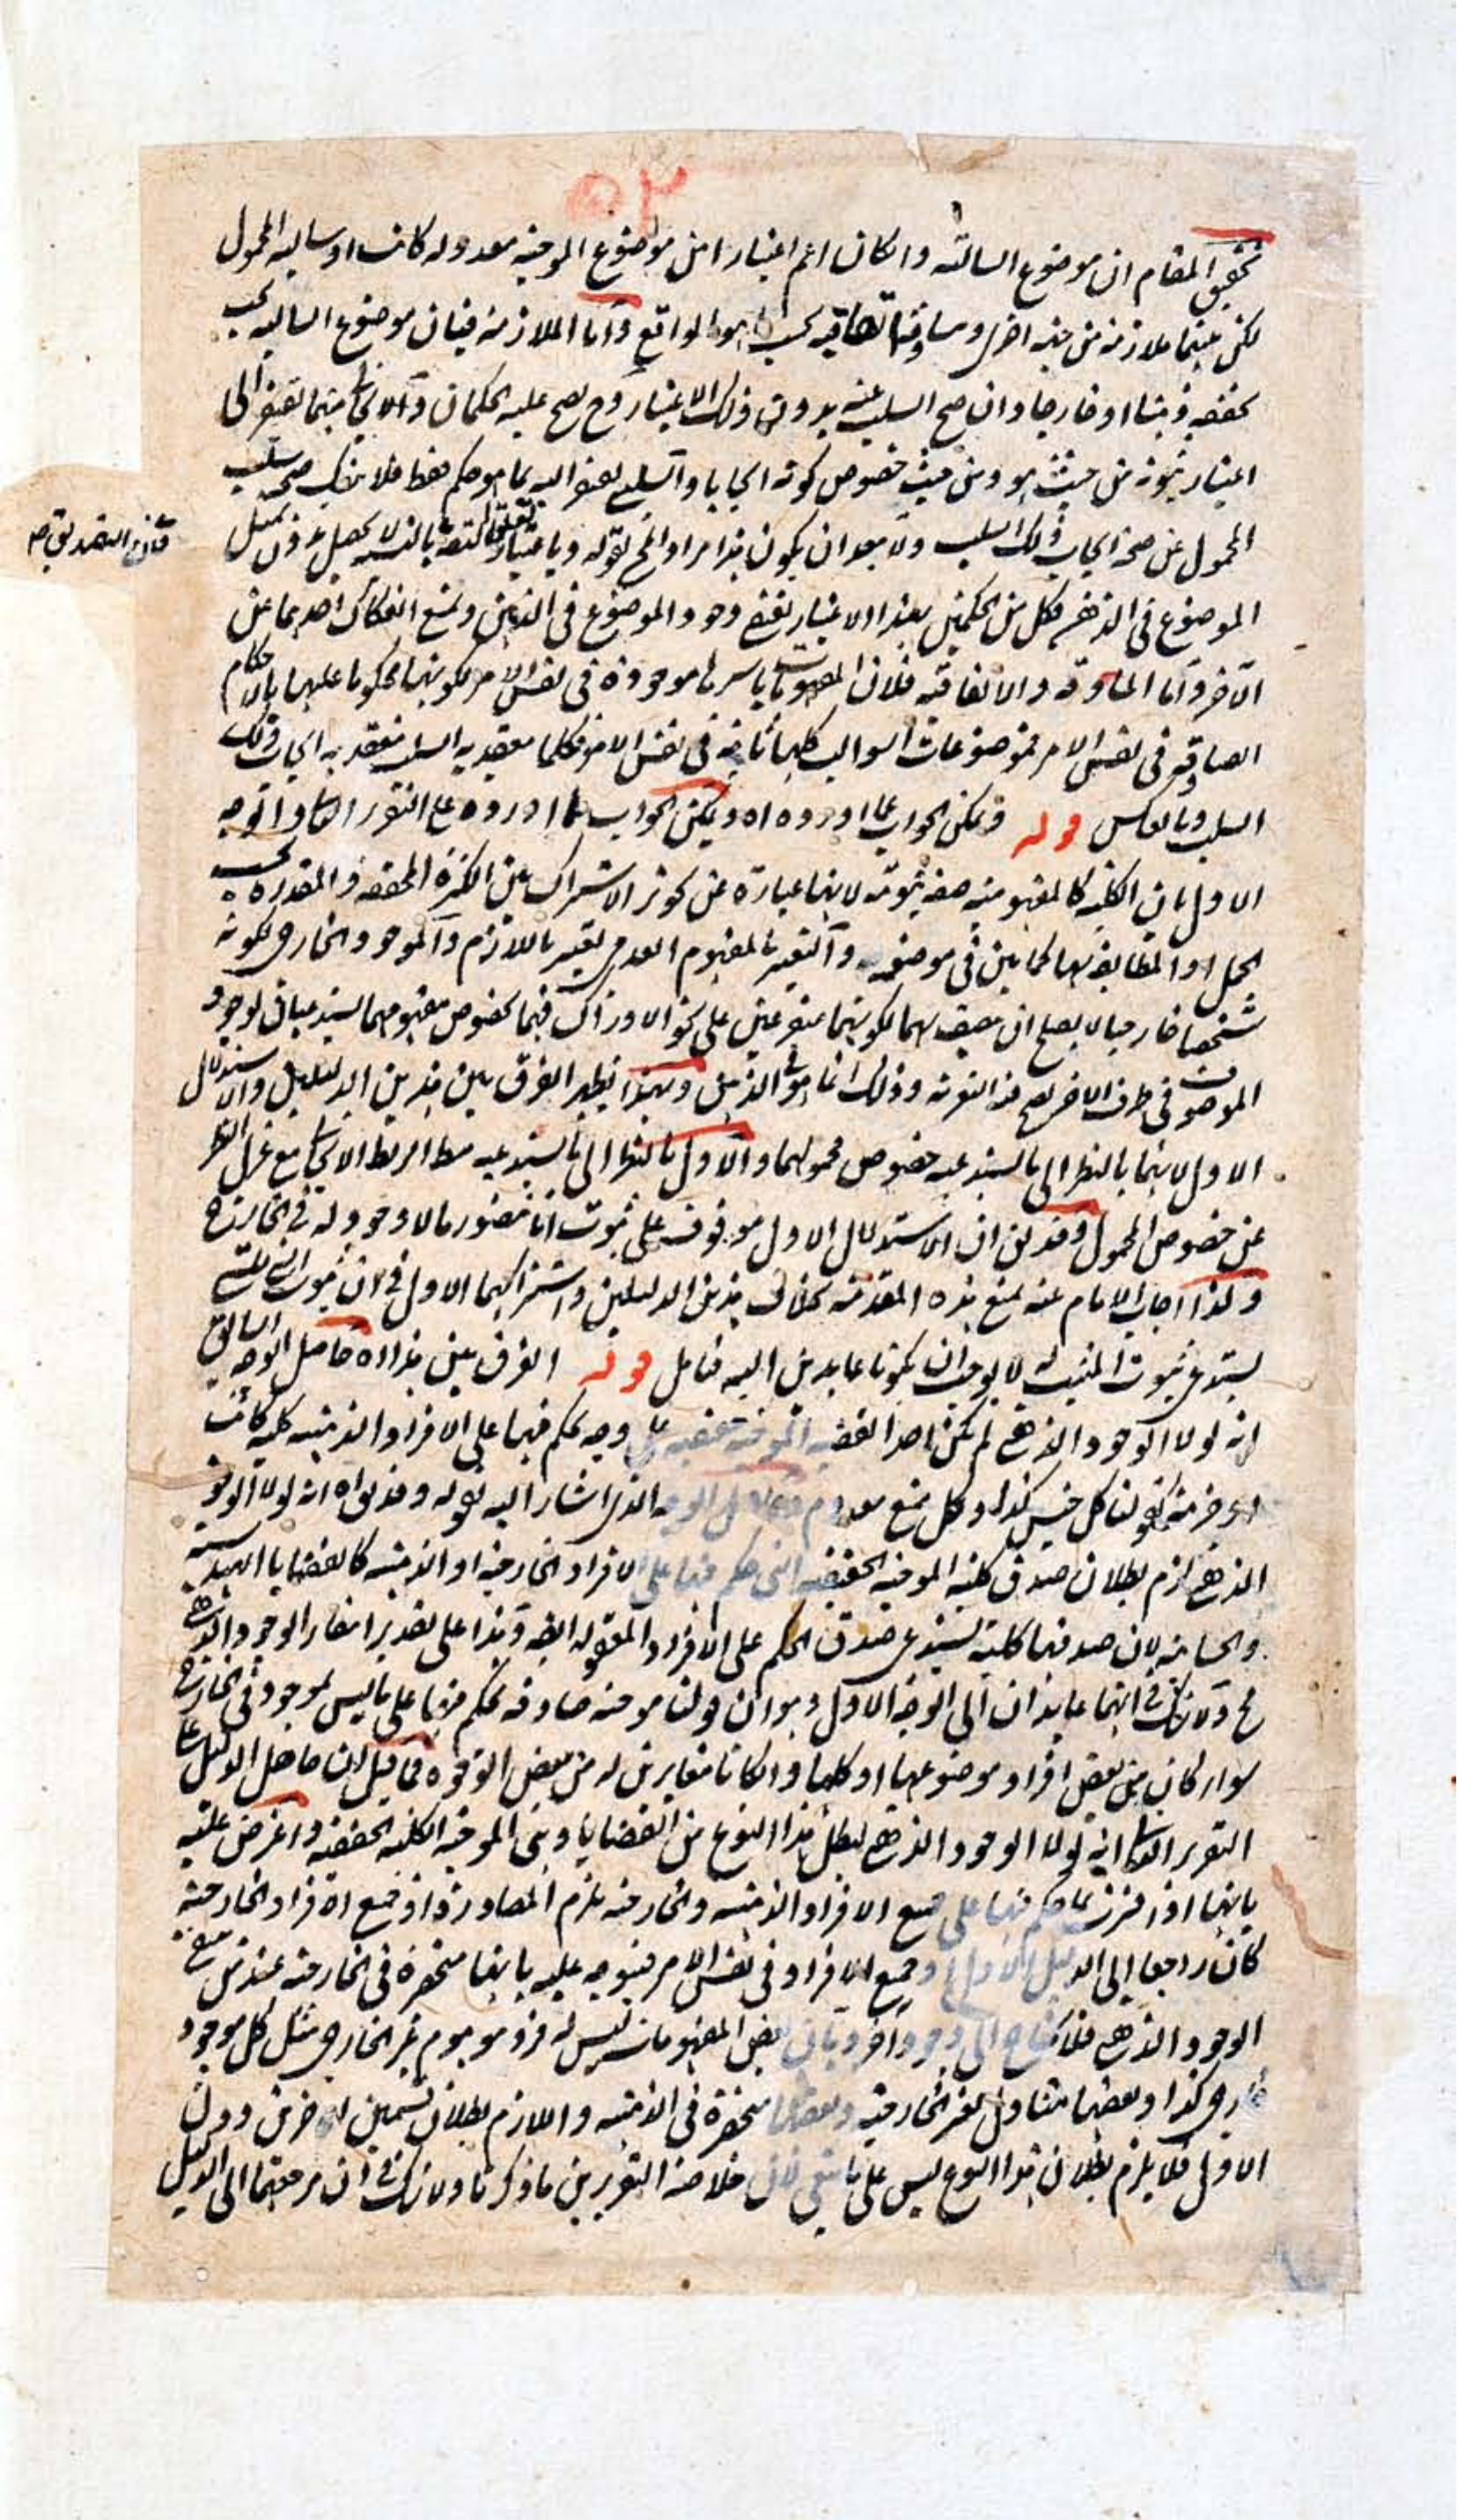 ٥٢
تحقيق المقام ان موضوع السالبة وان كان اعم اعتبارا من موضوع الموجبة معدولة كانت او سالبة المحمول
لكن بينهما ملازمة من جهة اخرى ومساوقة اتفاقية بحسب ما هو الواقع واما الملازمة فبيان موضوع السالبة يجب
تحققه ذهنا او خارجا وان صح السلب عنه بدون ذلك الاعتبار وح يصح عليه الحكمان والايجابي منهما يقتضى
اعتبار ثبوته من حيث هو ومن حيث خصوص كونه ايجابا والسلبي يقتضى اليه بما هو حكم فقط فلا ينفك صحة سلب
المحمول عن صحة ايجاب ذلك السلب ولا يبعد ان يكون هذا مراد المح بقوله وباعتبار لا يحصل بدون تمثل
فان التصديق
الموضوع فى الذهن فكل من الحكمين بهذا الاعتبار يقتضى وجود الموضوع فى الذهن ويمتنع انفكاك احدهما عن
الآخر واما المساوقة والاتفاقية فلان المفهومات باسرها موجودة فى نفس الامر لكونها محكوما عليها بالاحكام
الصادقة فى نفس الامر فموضوعات السوالب كلها ثابتة فى نفس الامر فكلما معقد به السلب منعقد به ايجاب ذلك
السلب وبالعكس قوله ويمكن الجواب عما اورده اه ويمكن الجواب عما اورده على التقرير الثانى والوجه
الاول بان الكلية كالمفهومية صفة ثبوتية لانها عبارة عن كونه الاشتراك بين الكثرة المحققة والمقدرة بحسب
الحمل او المطابقة لها كما بين فى موضعه والتعبير بالمفهوم العدمى تعبير باللازم والموجود الخارجى لكونه
شخصا خارجيا لا يصلح ان يتصف بهما لكونهما متفرعين على نحو الادراك فهما بخصوص مفهومهما يستدعيان لوجود
الموصوف فى ظرف الآخر وذلك انما هو فى الذهن وبهذا يظهر الفرق بين هذين الدليلين والاستدلال
الاول لانهما بالنظر الى ما يستدعيه خصوص محمولهما والاول بالنظر الى ما يستدعيه مط الربط الايجابى مع عزل النظر
عن خصوص المحمول وقد يق ان الاستدلال الاول موقوف على ثبوت انا نتصور ما لا وجود له فى الخارج
ولذا اجاب الامام عنه بمنع هذه المقدمة بخلاف هذين الدليلين واشتراكهما الاول فى ان ثبوت الشئ للشئ
يستدعى ثبوت المثبت له لا يوجب ان يكونا عايدين اليه فتامل قوله الفرق بين هذا اه حاصل الوجه السابق
انه لولا الوجود الذهنى لم يكن اخذ القضية الموجبة حقيقية على وجه يحكم فيها على الافراد الذهنية كلية كانت
او جزئية كقولنا كل جنس كذا وكل ممتنع معدوم وحاصل الوجه الذى اشار اليه بقوله وقد يق اه انه لولا الوجود
الذهنى لزم بطلان صدق كلية الموجبة الحقيقية التى حكم فيها على الافراد الخارجية او الذهنية كالقضايا الهندسية
والحسابية لان صدقها كلية يستدعى صدق الحكم على الافراد المعقولة ايضا وهذا على تقدير انتفاء الوجود الذهنى
مح ولا شك فى انهما عايدان الى الوجه الاول وهو ان لنا موجبة صادقة يحكم فيها على ما ليس بموجود فى الخارج
سواء كان من بعض افراد موضوعها او كلها وان كانا متغايرين له من بعض الوجوه فما قيل ان حاصل الدليل على
التقرير الثانى انه لولا الوجود الذهنى لبطل هذا النوع من القضايا وهى الموجبة الكلية الحقيقية واعترض عليه
بانها اذا فسرت بما حكم فيها على جميع الافراد الذهنية والخارجية يلزم المصادرة او جميع الافراد الخارجية
كان راجعا الى الدليل الاول او جميع الافراد فى نفس الامر فيتوجه عليه بانها منحصرة فى الخارجية عند من منع
الوجود الذهنى فلا يحتاج الى وجود آخر وبان بعض المفهومات ليس له فرد موهوم غير الخارجى مثل كل موجود
خارجى كذا وبعضها متناول لغير الخارجية وبعضها منحصرة فى الذهنية واللازم بطلان قسمين الاخيرين دون
الاول فلا يلزم بطلان هذا النوع ليس على ما ينبغى لان خلاصة التقريرين ما ذكرنا ولا شك فى ان مرجعهما الى الدليل